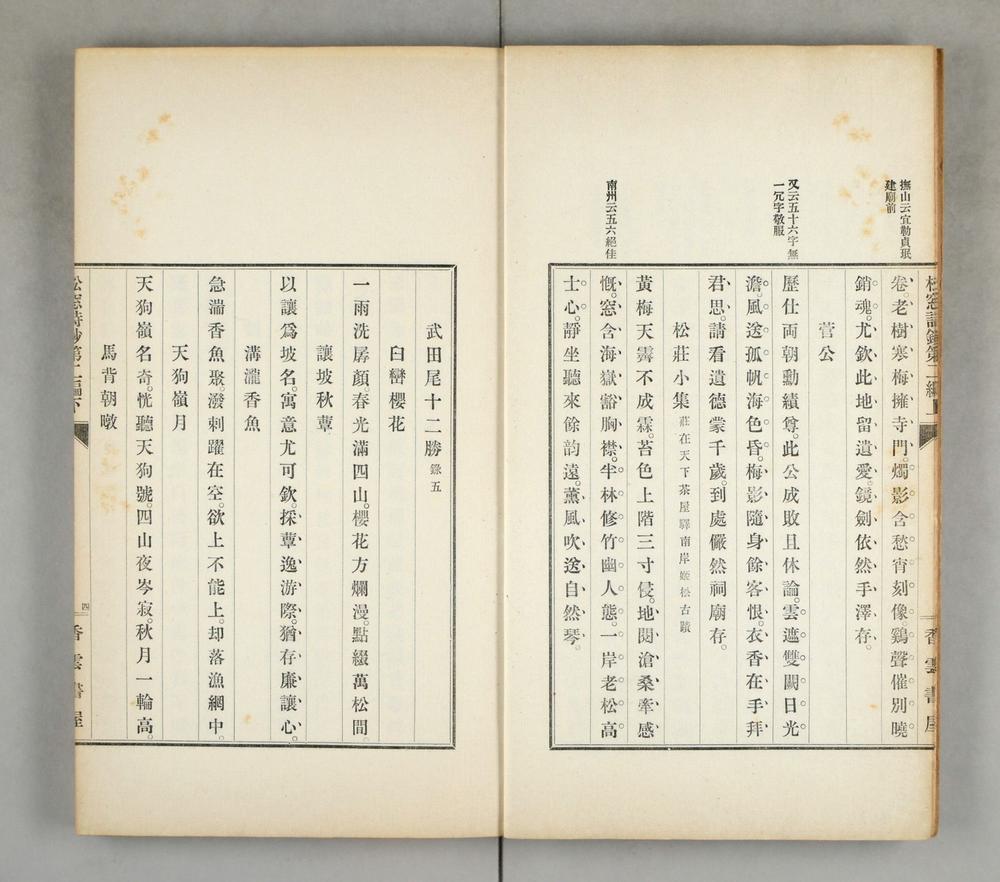 撫山云宜勒貞珉
建廟前
卷。老樹寒梅擁寺門。燭影含愁宵刻像。鷄聲催別曉
銷魂。尤欽此地留遺愛。鏡劍依然手澤存。
菅公
又云五十六字無
一冗字敬服
歷仕両朝勳績尊。此公成敗且休論。雲遮雙闕日光
澹。風送孤帆海色昏。梅影隨身餘客恨。衣香在手拜
君思。請看遺德蒙千歲。到處儼然祠廟存。
松莊小集 莊在天下茶屋驛南岸姬松古蹟
黃梅天霽不成霖。苔色上階三寸侵。地閱滄桑牽感
南州云五六絕佳
慨。窓含海嶽豁胸襟。半林修竹幽人態。一岸老松高
士心。靜坐聽來餘韵遠。薰風吹送自然琴。
香雲書屋
武田尾十二勝 錄五
臼巒櫻花
一雨洗孱顏。春光滿四山。櫻花方爛漫。點綴萬松間。
讓坡秋蕈
以讓爲坡名。寓意尤可欽。採蕈逸游際。猶存廉讓心。
溝瀧香魚
急湍香魚聚。潑剌躍在空。欲上不能上。却落漁網中。
天狗嶺月
天狗嶺名奇。恍聽天狗號。四山夜岑寂。秋月一輪高。
馬背朝暾
松窓詩鈔第二編下
四
香雲書屋